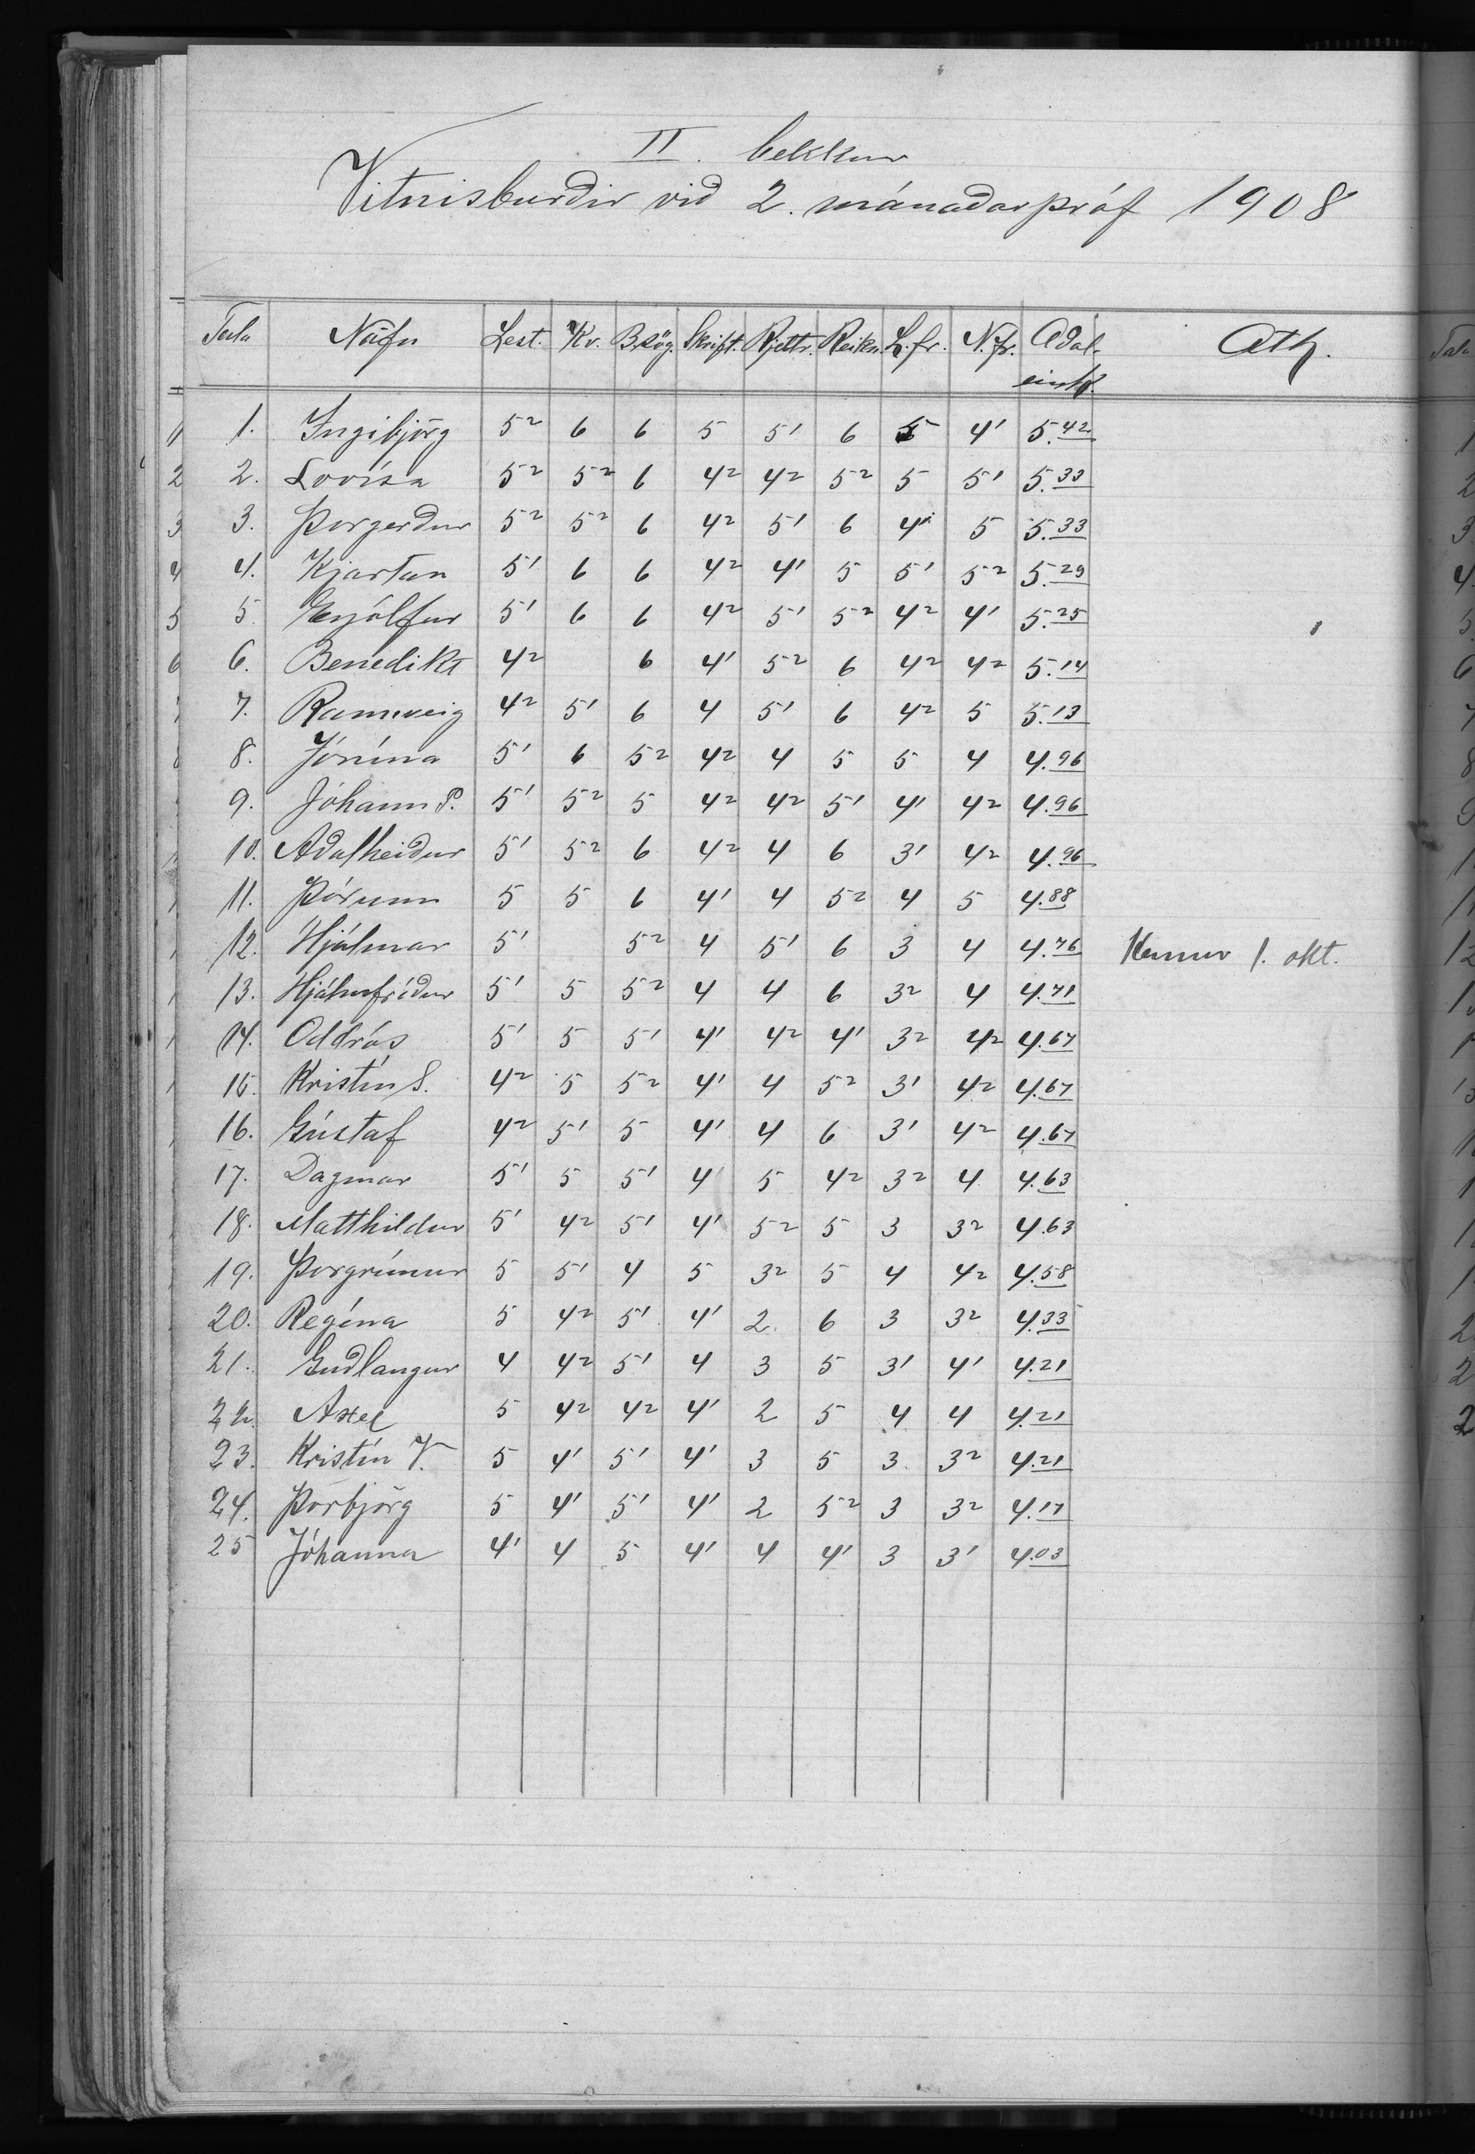 II. bekkur
Vitnisburðir við 2. mánaðarpróf 1908
Tala Nöfn Lest. Kv. B.sög. Skrift. Rjettr. Reikn. L.fr. N.fr. Aðal- Ath.
eink.
1. Ingibjörg 5² 6 6 5 5¹ 6 5 4¹ 5.42
2. Lovísa 5² 5² 6 4² 4² 5² 5 5¹ 5.33
3. Þorgerður 5² 5² 6 4² 5¹ 6 4¹ 5 5.33
4. Kjartan 5¹ 6 6 4² 4¹ 5 5¹ 5² 5.29
5. Eyjólfur 5¹ 6 6 4² 5¹ 5² 4² 4¹ 5.25
6. Benedikt 4² 6 4¹ 5² 6 4² 4² 5.14
7. Rannveig 4² 5¹ 6 4 5¹ 6 4² 5 5.13
8. Jónína 5¹ 6 5² 4² 4 5 5 4 4.96
9. Jóhann P. 5¹ 5² 5 4² 4² 5¹ 4¹ 4² 4.96
10. Aðalheiður 5¹ 5² 6 4² 4 6 3¹ 4² 4.96
11. Þórunn 5 5 6 4¹ 4 5² 4 5 4.88
12. Hjálmar 5¹ 5² 4 5¹ 6 3 4 4.76 Kemur 1. okt.
13. Hjálmfríður 5¹ 5 5² 4 4 6 3² 4 4.71
14. Oddrós 5¹ 5 5¹ 4¹ 4² 4¹ 3² 4² 4.67
15. Kristín S. 4² 5 5² 4¹ 4 5² 3¹ 4² 4.67
16. Gústaf 4² 5¹ 5 4¹ 4 6 3¹ 4² 4.67
17. Dagmar 5¹ 5 5¹ 4 5 4² 3² 4 4.63
18. Matthildur 5¹ 4² 5¹ 4¹ 5² 5 3 3² 4.63
19. Þorgrímur 5 5¹ 4 5 3² 5 4 4² 4.58
20. Regína 5 4² 5¹ 4¹ 2 6 3 3² 4.33
21. Guðlaugur 4 4² 5¹ 4 3 5 3¹ 4¹ 4.21
22. Axel 5 4² 4² 4¹ 2 5 4 4 4.21
23. Kristín V. 5 4¹ 5¹ 4¹ 3 5 3 3² 4.21
24. Þorbjörg 5 4¹ 5¹ 4¹ 2 5² 3 3² 4.17
25 Jóhanna 4¹ 4 5 4¹ 4 4¹ 3 3¹ 4.03